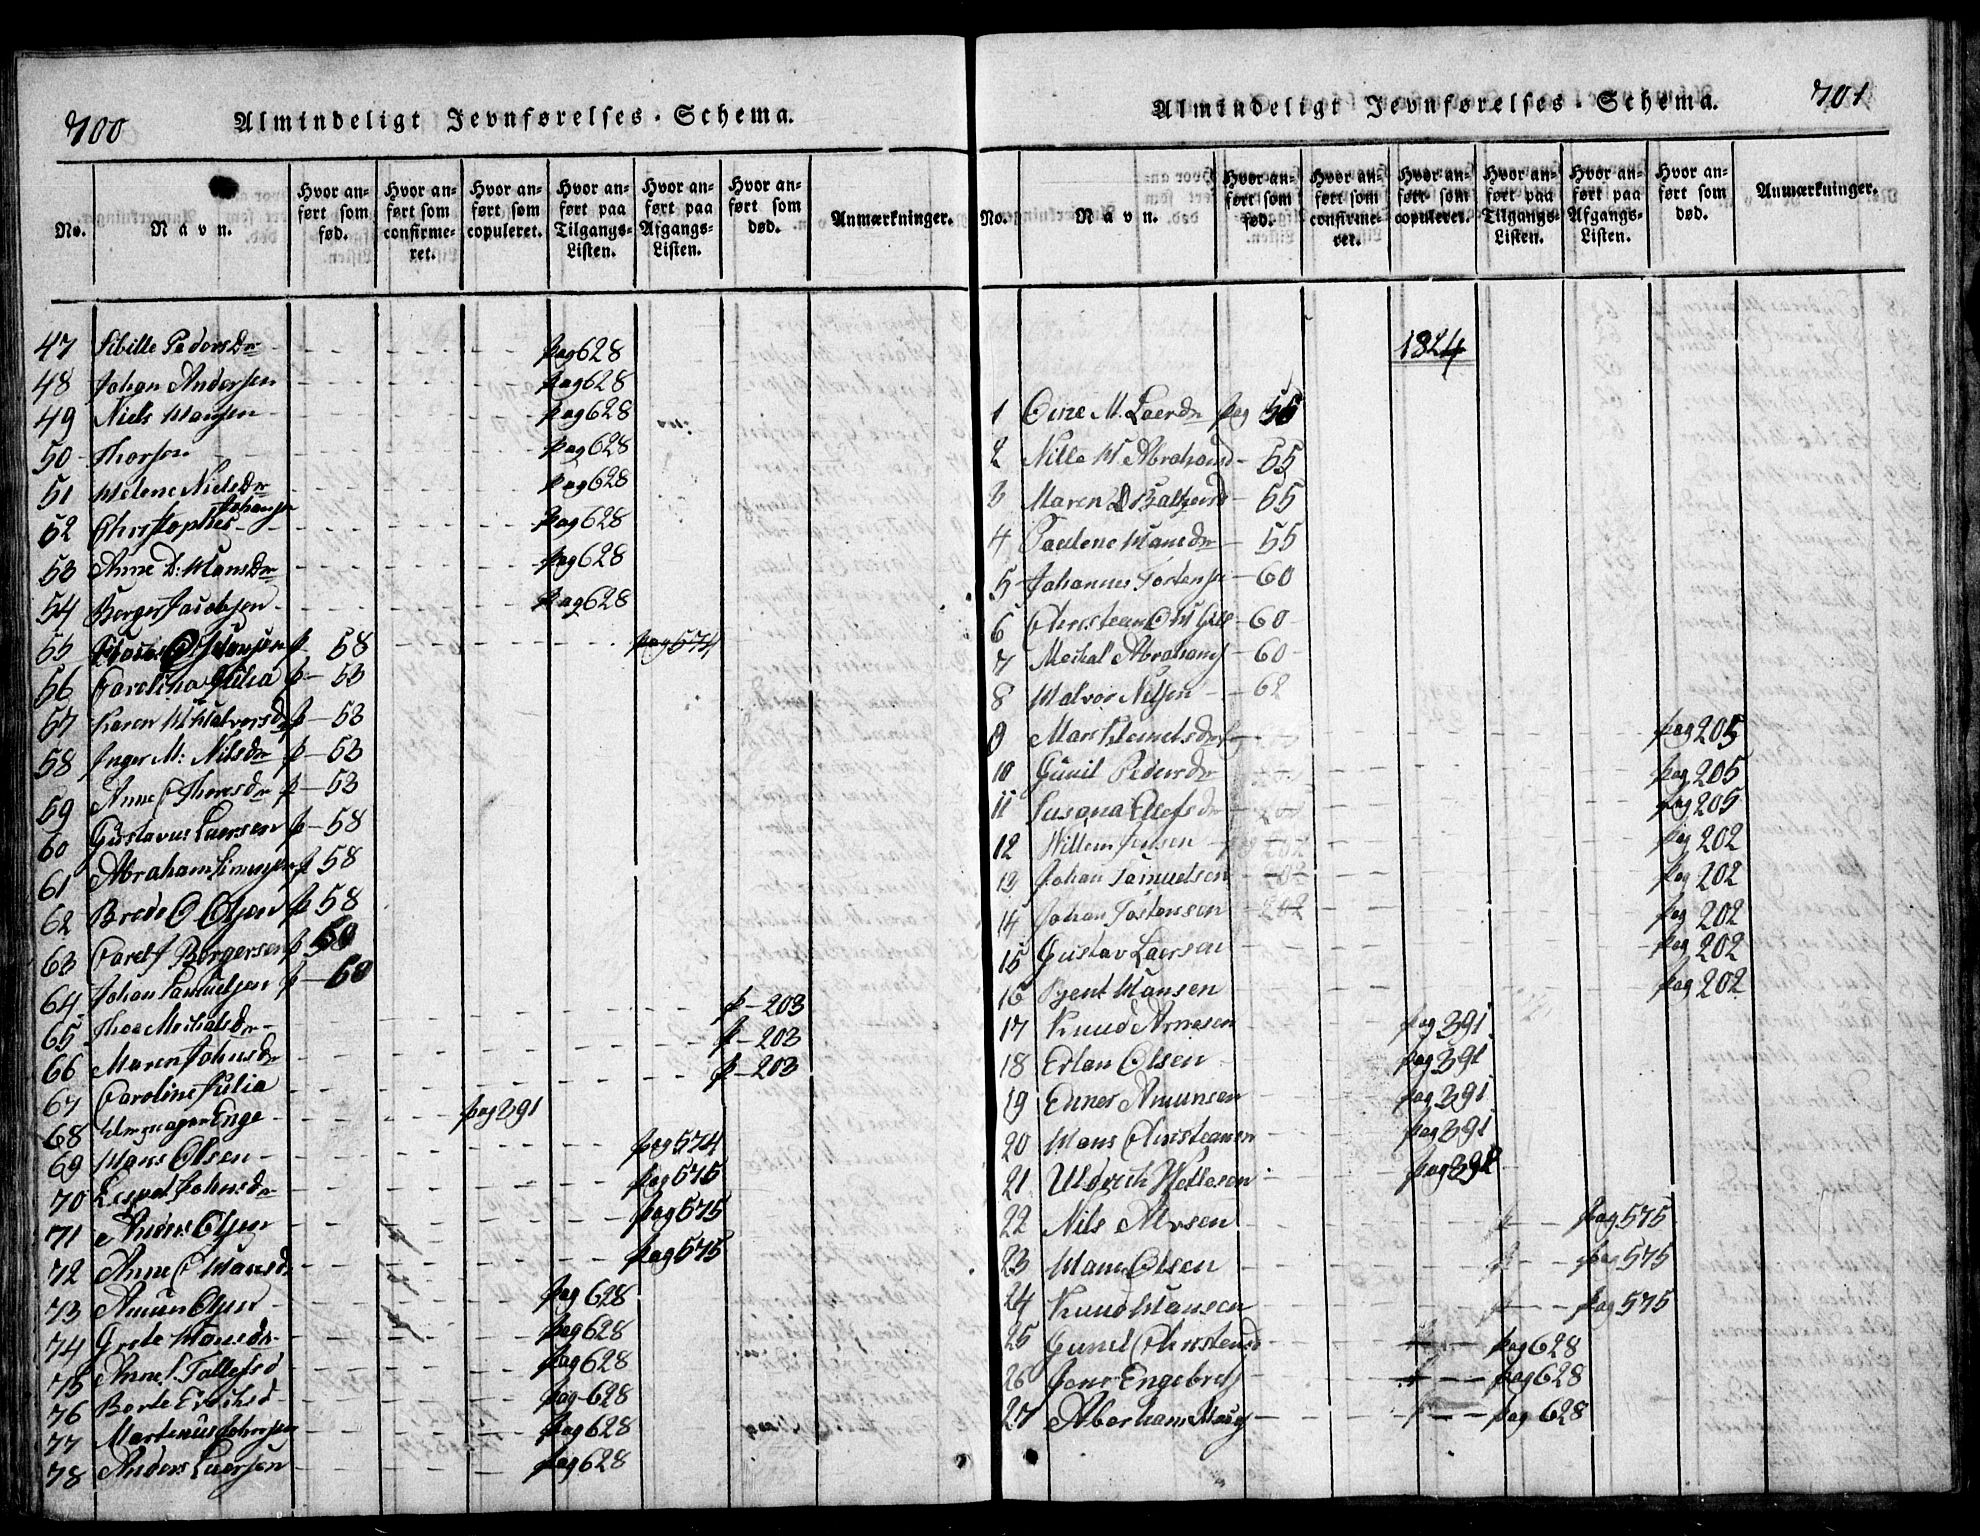 700
Almindeligt Jevnførelses-Schema.
No. Navn. Hvor anført som fød. Hvor anført som confirmeret. Hvor anført som copuleret. Hvor anført paa Tilgangs-Listen. Hvor anført paa Afgangs-Listen. Hvor anført som død. Anmærkninger.
47 Sibille Pedersdr pag 628
48 Johan Andersen pag 628
49 Niels Hansen pag 628
50 Thorsen pag 628
51 Helene Nielsdr pag 628
52 Christopher Johansen pag 628
53 Anne D: Hansdr pag 628
54 Berger Jacobsen pag 628
55 p 58 pag 574
56 Carolina Julia p 53
57 Karen M Halvorsd p 53
58 Inger M: Nilsdr p 53
59 Anne C Thoresdr p 53
60 Gustavus Laersen p 58
61 Abraham Simensen p 58
62 Brede O Olsen p 58
63 Carel J Borgersen p
64 Johan Samuelsen p 60
65 Thea Michalsdr p 203
66 Maren Johnsdr p 203
67 Caroline Julia p 203
68 Enge pag 391
69 Hans Olsen pag 574
70 Johnsdr pag 575
71 Anders Olsen pag 575
72 Anne C Hansd pag 575
73 Amun Olsen pag 628
74 Grete Hansdr pag 628
75 Anne S. Tollefsd pag 628
76 Berte Erichsd pag 628
77 Martenus Johnsen pag 628
78 Anders Laersen pag 628
701
Almindeligt Jevnførelses-Schema.
No. Navn. Hvor anført som fød. Hvor anført som confirmeret. Hvor anført som copuleret. Hvor anført paa Tilgangs-Listen. Hvor anført paa Afgangs-Listen. Hvor anført som død. Anmærkninger.
1824
1 Oine M. Laerdr pag 55
2 Nille M Abrahamsd 55
3 Maren D 55
4 Paulene Hansdr 55
5 Johannes Tostensen 60
6 Christean 60
7 Mechal Abrahams 60
8 Halvor Nilsen 62
9 pag 205
10 Gunil Pedersdr pag 205
11 Susana Ellefsdr pag 205
12 Willem Jensen pag 202 pag 202
13 Johan Samuelsen 202 pag 202
14 Johan Tostensen 202 pag 202
15 Gustav Laersen pag 202
16 Bent Hansen pag 202
17 Knud Arnesen pag 391
18 Erlan Olsen pag 391
19 Enner Amunsen pag 391
20 Hans Christeansen pag 391
21 Uldrich pag 391
22 Nils Alvsen pag 575
23 Hans Olsen pag 575
24 Knud Hansen pag 575
25 Gunel Christensd pag 628
26 Jens Engebrets pag 628
27 Aberham pag 628